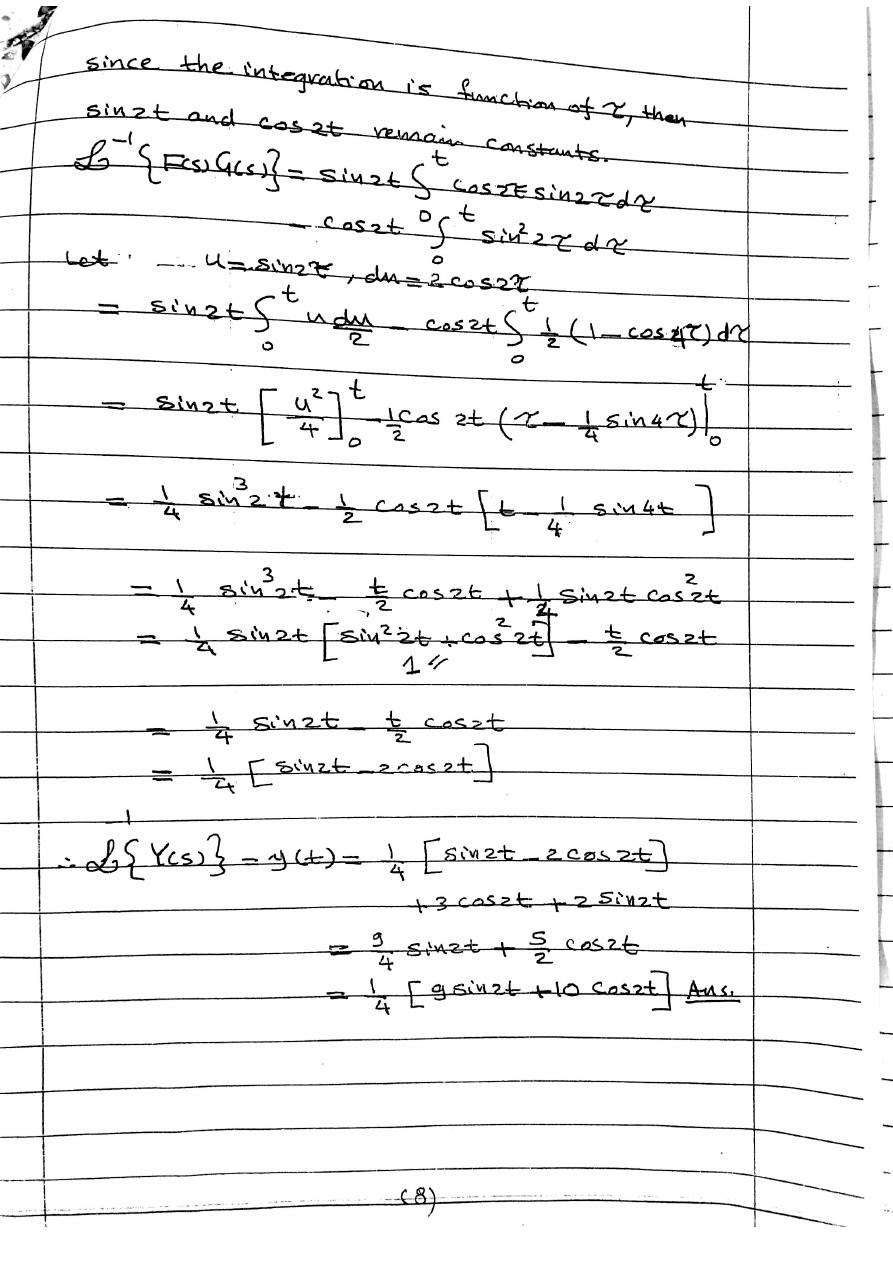 since the integration is function of τ, then
sin2t and cos2t remain constants.
ℒ⁻¹{F(s)G(s)} = sin2t ∫₀ᵗ cos2τ sin2τ dτ
− cos2t ∫₀ᵗ sin²2τ dτ
Let u = sin2τ, du = 2cos2τ
= sin2t ∫₀ᵗ u du/2 − cos2t ∫₀ᵗ 1/2 (1 − cos4τ) dτ
= sin2t [u²/4]₀ᵗ − 1/2 cos 2t (τ − 1/4 sin4τ)|₀ᵗ
= 1/4 sin³2t − 1/2 cos2t [t − 1/4 sin4t]
= 1/4 sin³2t − t/2 cos2t + 1/4 sin2t cos²2t
= 1/4 sin2t [sin²2t + cos²2t] − t/2 cos2t
1 〃
= 1/4 sin2t − t/2 cos2t
= 1/4 [sin2t − 2cos2t]
∴ ℒ⁻¹{Y(s)} = y(t) = 1/4 [sin2t − 2cos2t]
+3cos2t + 2sin2t
= 9/4 sin2t + 5/2 cos2t
= 1/4 [9sin2t + 10 cos2t] Ans.
(8)